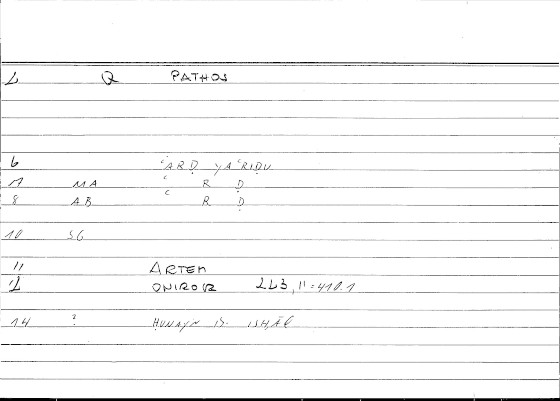 2 Q PATHOS
6 ʿARḌ YAʿRIḌU
7 MA ʿ R Ḍ
8 AB ʿ R Ḍ
10 SG
11 ARTEM
12 ONIROCR 223,11=410.1
14 ? ḤUNAYN B. ISḤĀQ